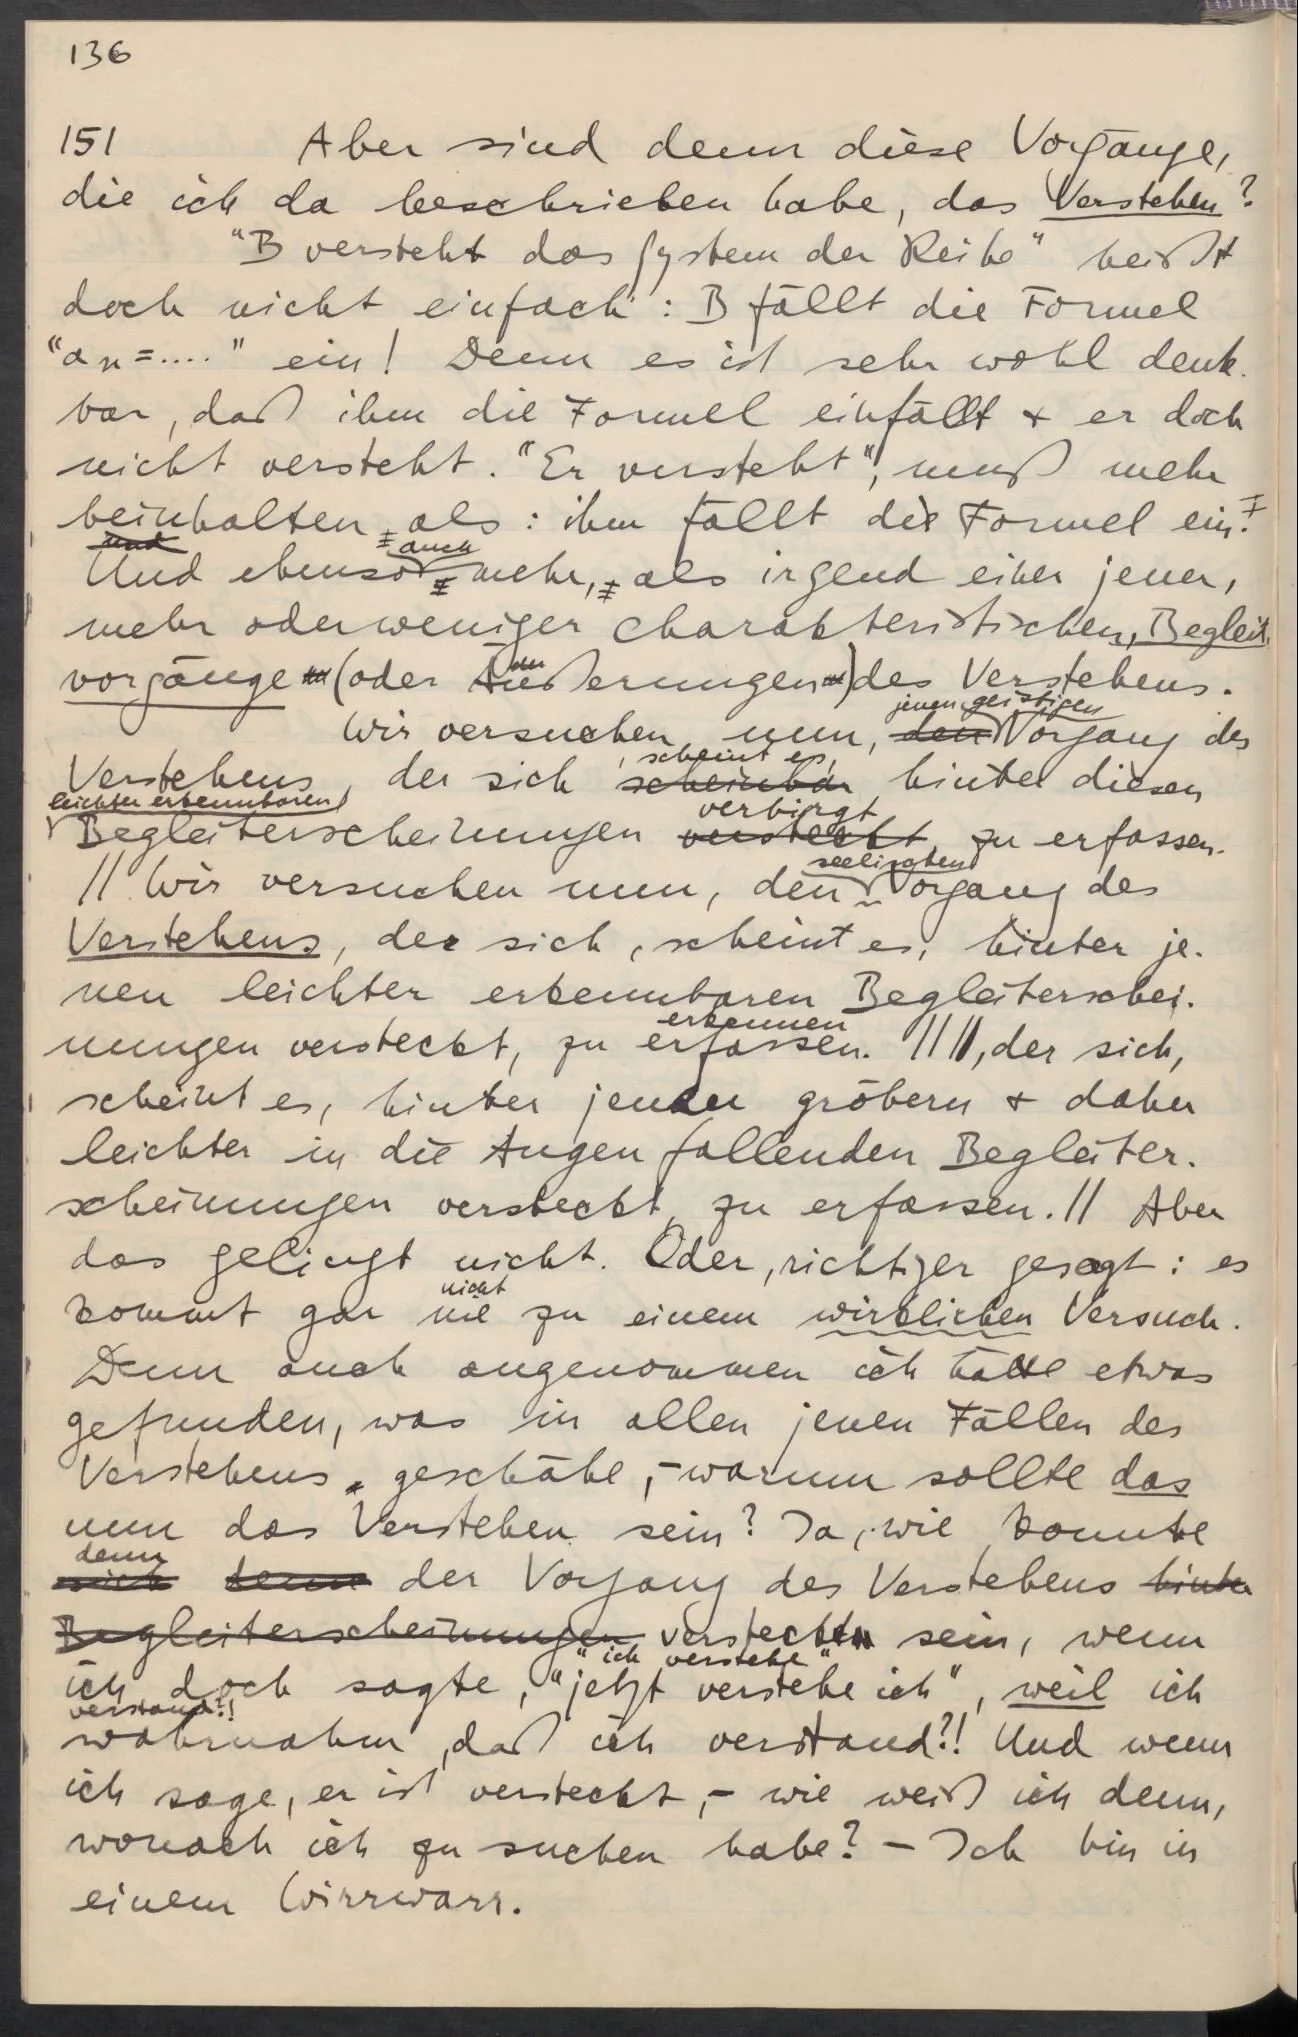 136
151 Aber sind denn diese Vorgänge,
die ich da beschrieben habe, das Verstehen?
"B versteht das System der Reihe" heißt
doch nicht einfach: B fällt die Formel
"an=...." ein! Denn es ist sehr wohl denk-
bar, daß ihm die Formel einfällt & er doch
nicht versteht. "Er versteht", muß mehr
beinhalten, als: ihm fällt die Formel ein.
und auch
Und ebenso mehr, als irgend einer jener,
mehr oder weniger charakteristischen, Begleit-
vorgänge (oder Äußerungen) des Verstehens.
jenen geistigen
Wir versuchen nun, den Vorgang des
, scheint es,
Verstehens, der sich scheinbar hinter diesen
leichter erkennbaren verbirgt
Begleiterscheinungen versteckt, zu erfassen.
seelischen
// Wir versuchen nun, den Vorgang des
Verstehens, der sich, scheint es, hinter je-
nen leichter erkennbaren Begleiterschei-
erkennen
nungen versteckt, zu erfassen. // //, der sich,
scheint es, hinter jenen gröbern & daher
leichter in die Augen fallenden Begleiter-
scheinungen versteckt, zu erfassen. // Aber
das gelingt nicht. Oder, richtiger gesagt: es
nicht
kommt gar nie zu einem wirklichen Versuch.
Denn auch angenommen ich hätte etwas
gefunden, was in allen jenen Fällen des
Verstehens geschähe, – warum sollte das
nun das Verstehen sein? Ja, wie konnte
denn
sich denn der Vorgang des Verstehens hinter
Begleiterscheinungen versteckt sein, wenn
"ich verstehe"
ich doch sagte, "jetzt verstehe ich", weil ich
verstand?!
wahrnahm, daß ich verstand?! Und wenn
ich sage, er ist versteckt, – wie weiß ich denn,
wonach ich zu suchen habe? – Ich bin in
einem Wirrwarr.